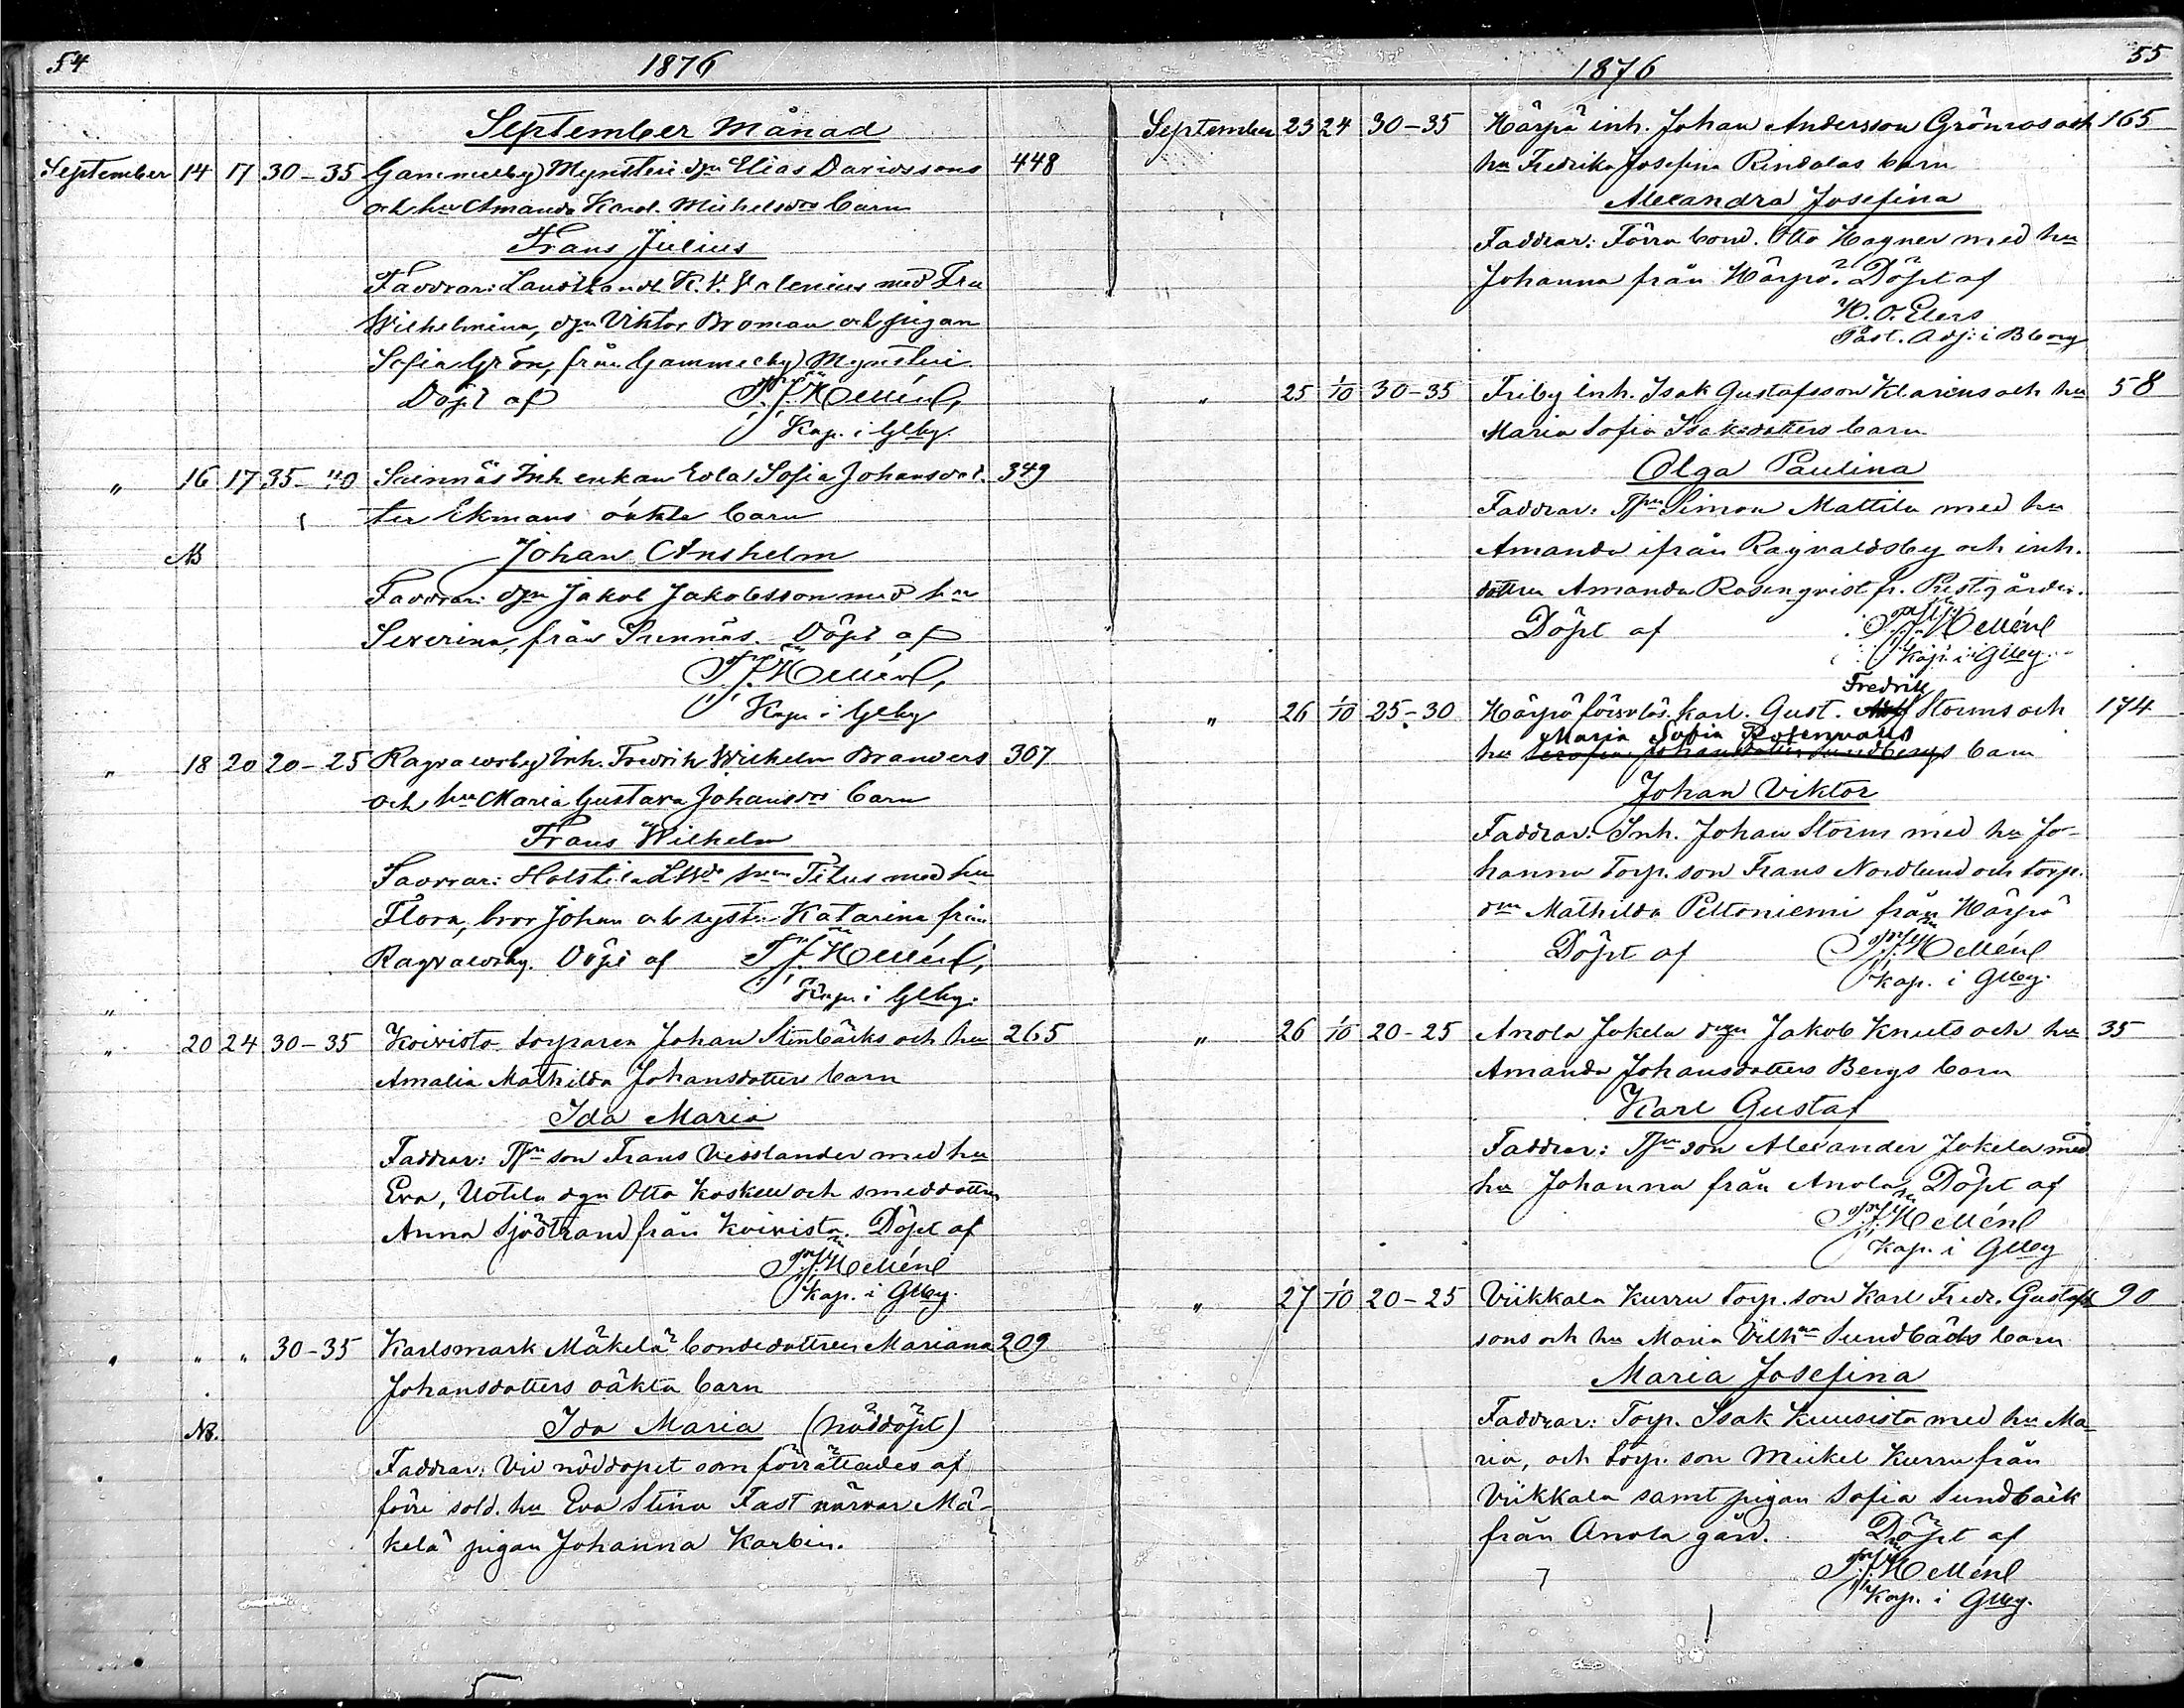 54
1876
September Månad
September 14 17 30-35 Gammelby Mynsteri dgn Elias Davidssons 448
och hu Amanda Karol. Michelsdrs barn
Frans Julius
Faddrar: Landthandl. K. V. Valenius med Fru
Wilhelmina, dgn Viktor Broman och pigan
Sofia Grön, från Gammelby Mynsteri
Döpt af Hellén,
Kap. i Glby.
" 16 17 35-40 Sunnäs Inh. enkan Eva Sofia Johansdot- 349
ter Ekmans oäkta barn
NB Johan Anshelm
Faddrar: dgn Jakob Jakobsson med hu
Severina, från Sunnäs. Döpt af
Hellén,
Kap. i Glby
" 18 20 20-25 Ragvaldsby Inh. Fredrik Wilhelm Branders 307
och hu Maria Gustava Johansdrs barn
Frans Wilhelm
Faddrar: Holstila Titus med hu
Flora, bror Johan och syster Katarina från
Ragvaldsby. Döpt af Hellén,
Kap. i Glby.
"
" 20 24 30-35 Koivisto torparen Johan Stenbäcks och hu 265
Amalia Mathilda Johansdotters barn
Ida Maria
Faddrar: son Frans Visslander med hu
Eva, Uotila dgn Otto Koskell och smeddottren
Anna Sjöstrand från Koivisto. Döpt af
Hellén
Kap. i Glby.
" " 30-35 Karlsmark Mäkelä bondedottren Mariana 209
Johansdotters oäkta barn
NB. Ida Maria (nöddöpt)
Faddrar: Vid nöddopet som förrättades af
förre sold. hu Eva Stina Fast närvar Mä-
kelä pigan Johanna Karbin.
1876
55
September 23 24 30-35 Härpö inh. Johan Andersson Grönroos och 165
hu Fredrika Josefina Rindalas barn
Alexandra Josefina
Faddrar: Förra bond. Otto Hagner med hu
Johanna från Härpö. Döpt af
H. O. Elers
Past. Adj: i Bborg
" 25 1/10 30-35 Friby Inh. Isak Gustafsson Klarins och hu 58
Maria Sofia Isaksdotters barn
Olga Paulina
Faddrar: Simon Mattila med hu
Amanda ifrån Ragvaldsby och inh.
dottren Amanda Rosenqvist fr. Prestgården.
Döpt af Hellén
Kap. i Glby.
Fredrik
" 26 1/10 25-30 Härpö försvlös. karl. Gust. Storms och 174
Maria Sofia Rosenvalls
hu barn
Johan Viktor
Faddrar: Inh. Johan Storm med hu Jo-
hanna Torp. son Frans Nordlund och torp.
drn Mathilda Peltoniemi från Härpö
Döpt af Hellén
Kap. i Glby.
" 26 1/10 20-25 Anola Jokela dgn Jakob Knuts och hu 35
Amanda Johansdotters Bergs barn
Karl Gustaf
Faddrar: son Alexander Jokela med
hu Johanna från Anola, Döpt af
Hellén
Kap. i Glby
" 27 1/10 20-25 Viikkala Kurru torp. son Karl Fredr. Gustafs 90
sons och hu Maria Vilhna Sundbäcks barn
Maria Josefina
Faddrar: Torp. Isak Kuusisto med hu Ma
ria, och torp. son Mickel Kurru från
Viikkala samt pigan Sofia Sundbäck
från Anola gård. Döpt af
Hellén
Kap. i Glby.